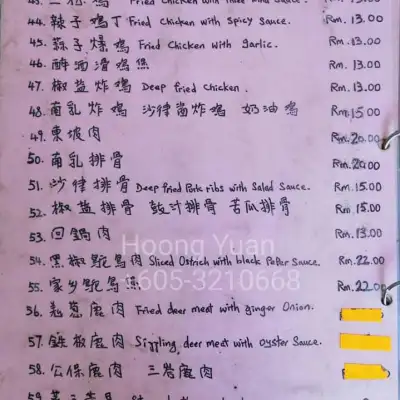 44. 辣子鸡丁 Fried Chicken with Spicy Sauce. Rm. 13.00
45. 蒜子爆鸡 Fried Chicken with Garlic. Rm. 13.00
46. 滑鸡煲 Rm. 13.00
47. 椒盐炸鸡 Deep fried Chicken. Rm. 13.00
48. 南乳炸鸡 沙律酱炸鸡 奶油鸡 Rm. 15.00
49. 東坡肉 Rm. 20.00
50. 南乳排骨 Rm. 20.00
51. 沙律排骨 Deep fried Pork ribs with Salad Sauce. Rm. 15.00
52. 椒盐排骨 豉汁排骨 苦瓜排骨 Rm 15.00
53. 回鍋肉 Rm. 13.00
Hoong Yuan
605-3210668
54. 黑椒鸵鸟肉 Sliced Ostrich with black Paper Sauce. Rm. 22.00
55. 家乡鸵鸟煲 Rm. 22.00
56. 姜葱鹿肉 Fried deer meat with ginger Onion.
57. 鉄板鹿肉 Sizzling deer meat with oyster Sauce.
58. 公保鹿肉 三巻鹿肉
59.